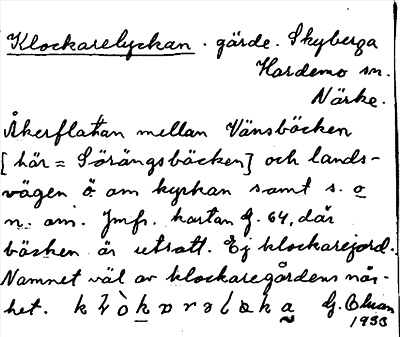 Klockarelyckan. gärde. Skyberga
Hardemo sn.
Närke.
Åkerflatan mellan Vänsbäcken
[här = Sörängsbäcken] och lands-
vägen ö om kyrkan samt s. o
n. om. Jmfr. kartan G. 64, där
bäcken är utsatt. Ej klockarejord.
Namnet väl av klockaregårdens när-
het.
1933